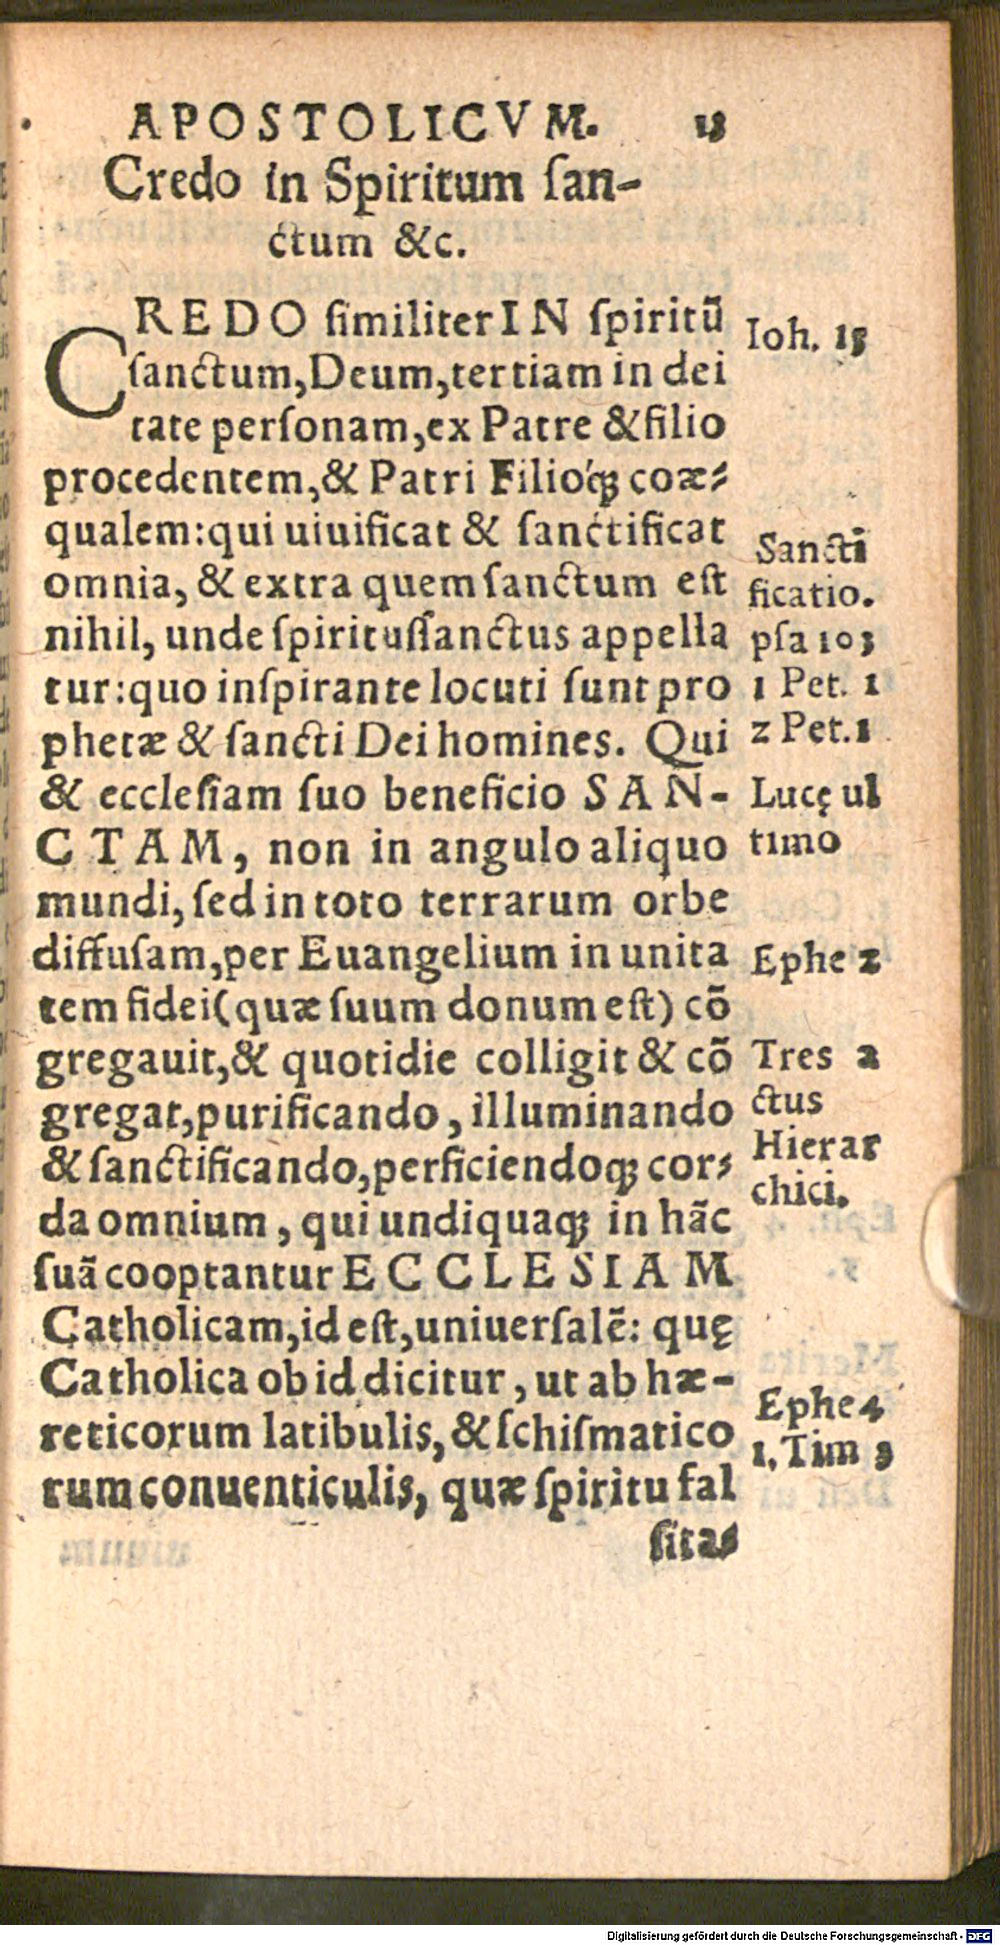 APOSTOLICVM. 13
Credo in Spiritum ſan-
ctum &c.
CREDO ſimiliter IN ſpiritū
ſanctum, Deum, tertiam in dei
tate perſonam, ex Patre & filio
procedentem, & Patri Filioq́ꝫ coæ⸗
qualem: qui uiuificat & ſanctificat
omnia, & extra quem ſanctum eſt
nihil, unde ſpirituſſanctus appella
tur: quo inſpirante locuti ſunt pro
phetæ & ſancti Dei homines. Qui
& eccleſiam ſuo beneficio SAN-
CTAM, non in angulo aliquo
mundi, ſed in toto terrarum orbe
diffuſam, per Euangelium in unita
tem fidei (quæ ſuum donum eſt) cō
gregauit, & quotidie colligit & cō
gregat, purificando, illuminando
& ſanctificando, perficiendoqꝫ cor⸗
da omnium, qui undiquaqꝫ in hāc
ſuā cooptantur ECCLESIAM
Catholicam, id eſt, uniuerſalē: quę
Catholica ob id dicitur, ut ab hæ-
reticorum latibulis, & ſchiſmatico
rum conuenticulis, quæ ſpiritu fal
ſitas
Ioh. 15
Sancti
ficatio.
pſa 103
1 Pet. 1
2 Pet. 1
Lucę ul
timo
Ephe 2
Tres a
ctus
Hierar
chici.
Ephe 4
1. Tim 3
Digitalisierung gefördert durch die Deutsche Forschungsgemeinschaft - DFG